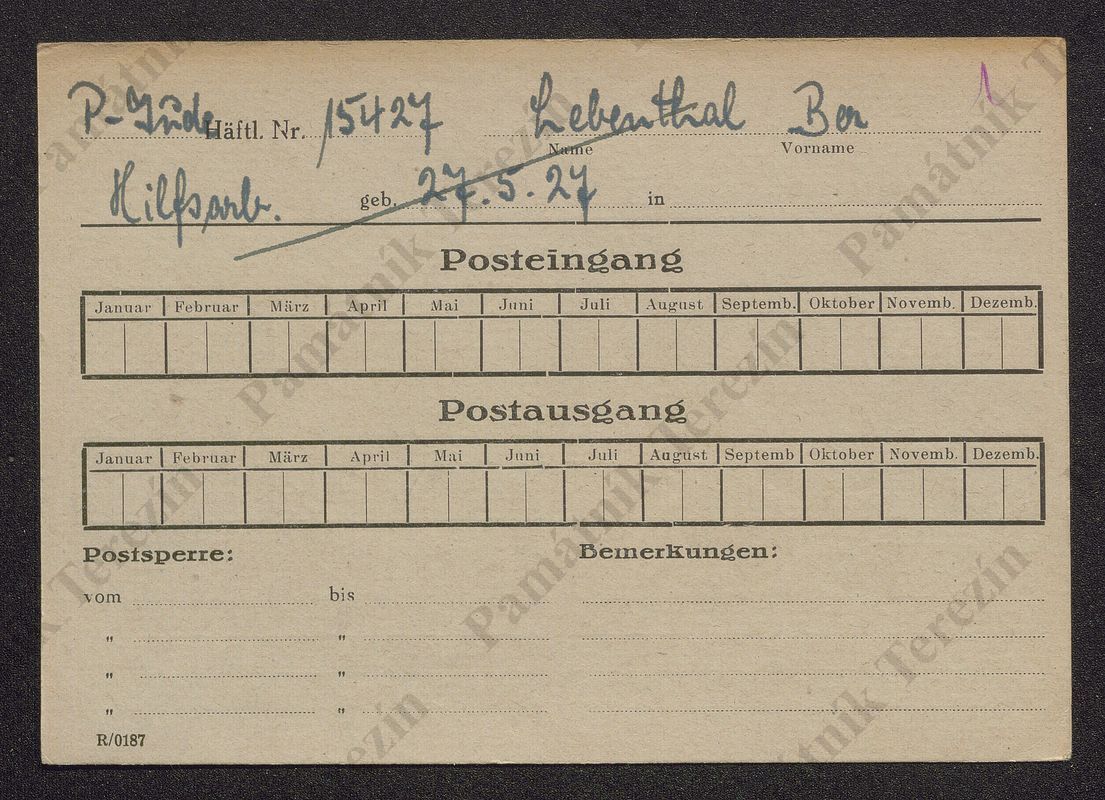 P-Jude Häftl. Nr. 15427 Lebenthal Ber 1
Name Vorname
Hilfsarb. geb. 27.5.27 in
Posteingang
Januar Februar März April Mai Juni Juli August Septemb. Oktober Novemb. Dezemb.
Postausgang
Januar Februar März April Mai Juni Juli August Septemb Oktober Novemb. Dezemb.
Postsperre: Bemerkungen:
vom bis
" "
" "
" "
R/0187
Památník Terezín